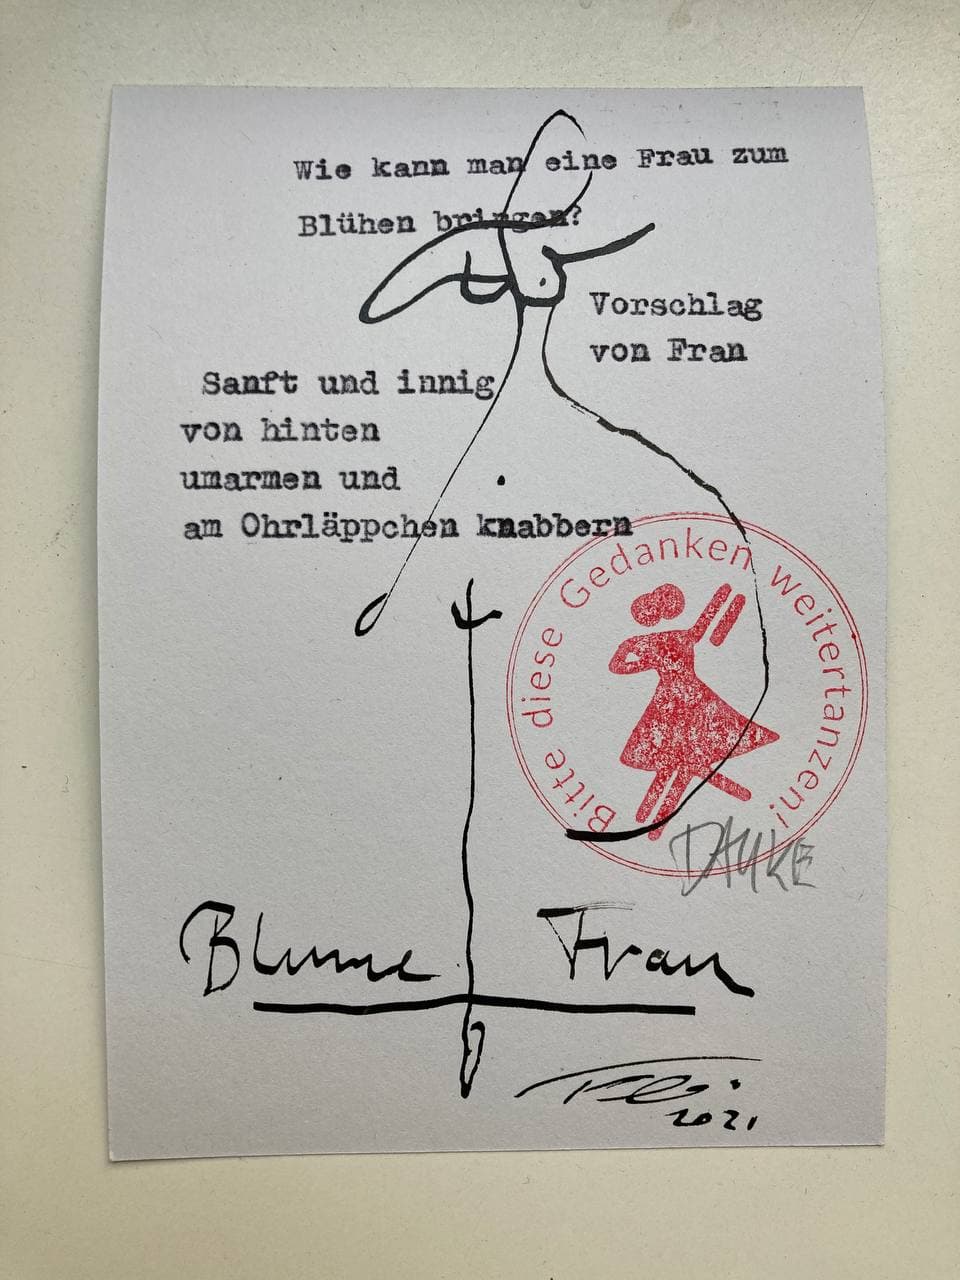 Wie kann man eine Frau zum
Blühen bringen?
Vorschlag
von Fran
Sanft und innig
von hinten
umarmen und
am Ohrläppchen knabbern
Bitte diese Gedanken weitertanzen!
DANKE
Blume Frau
2021